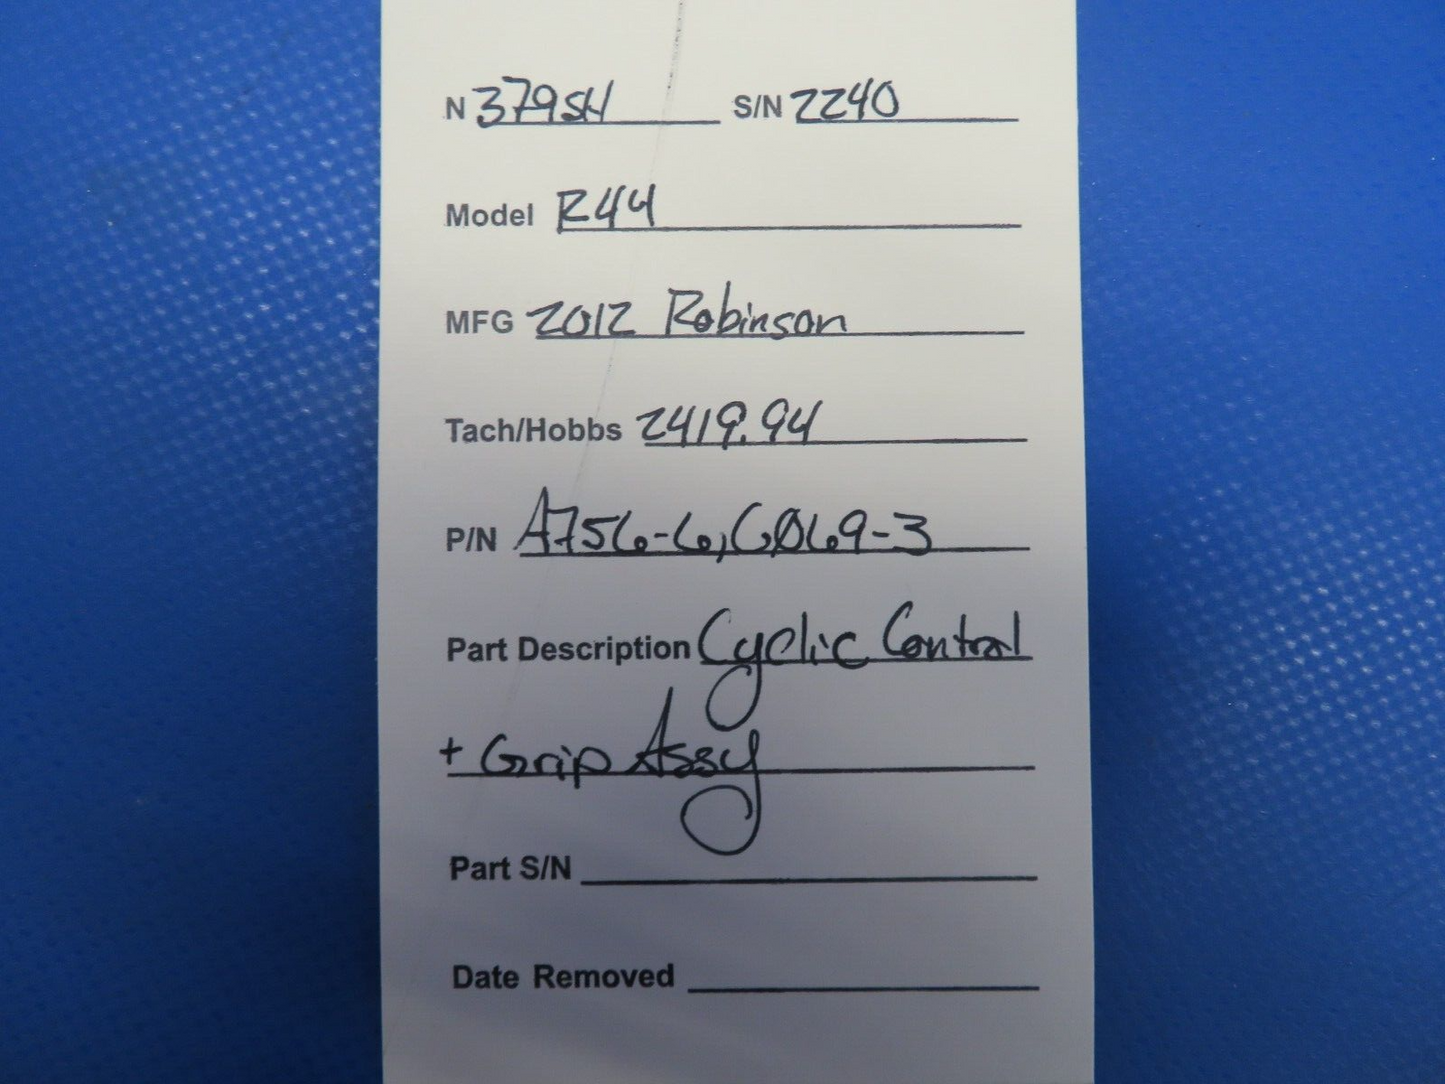 N 379SH S/N 2240
Model R44
MFG 2012 Robinson
Tach/Hobbs 2419.94
P/N A756-6, C069-3
Part Description Cyclic Control
+ Grip Assy
Part S/N
Date Removed